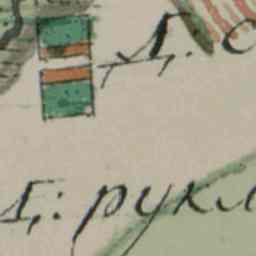 Д. с
Д,: рукл